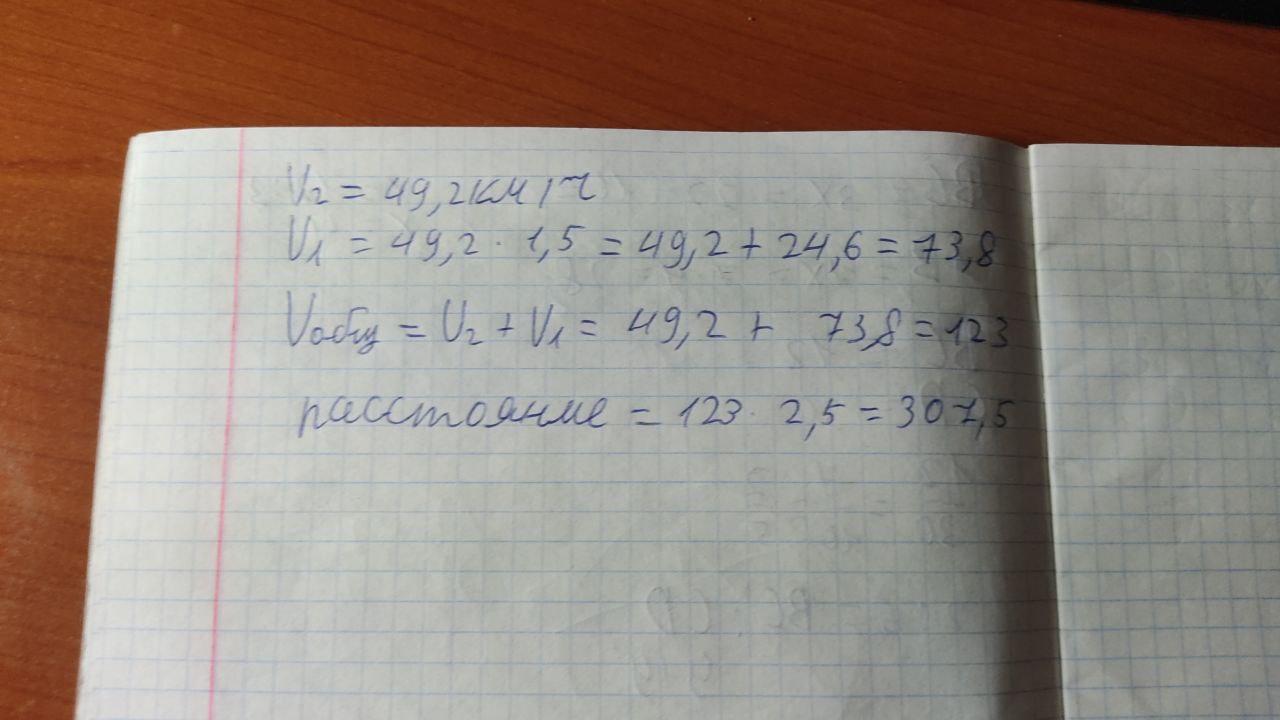 V₂ = 49,2км/ч
V₁ = 49,2 · 1,5 = 49,2 + 24,6 = 73,8
Vобщ = V₂ + V₁ = 49,2 + 73,8 = 123
расстояние = 123 · 2,5 = 307,5